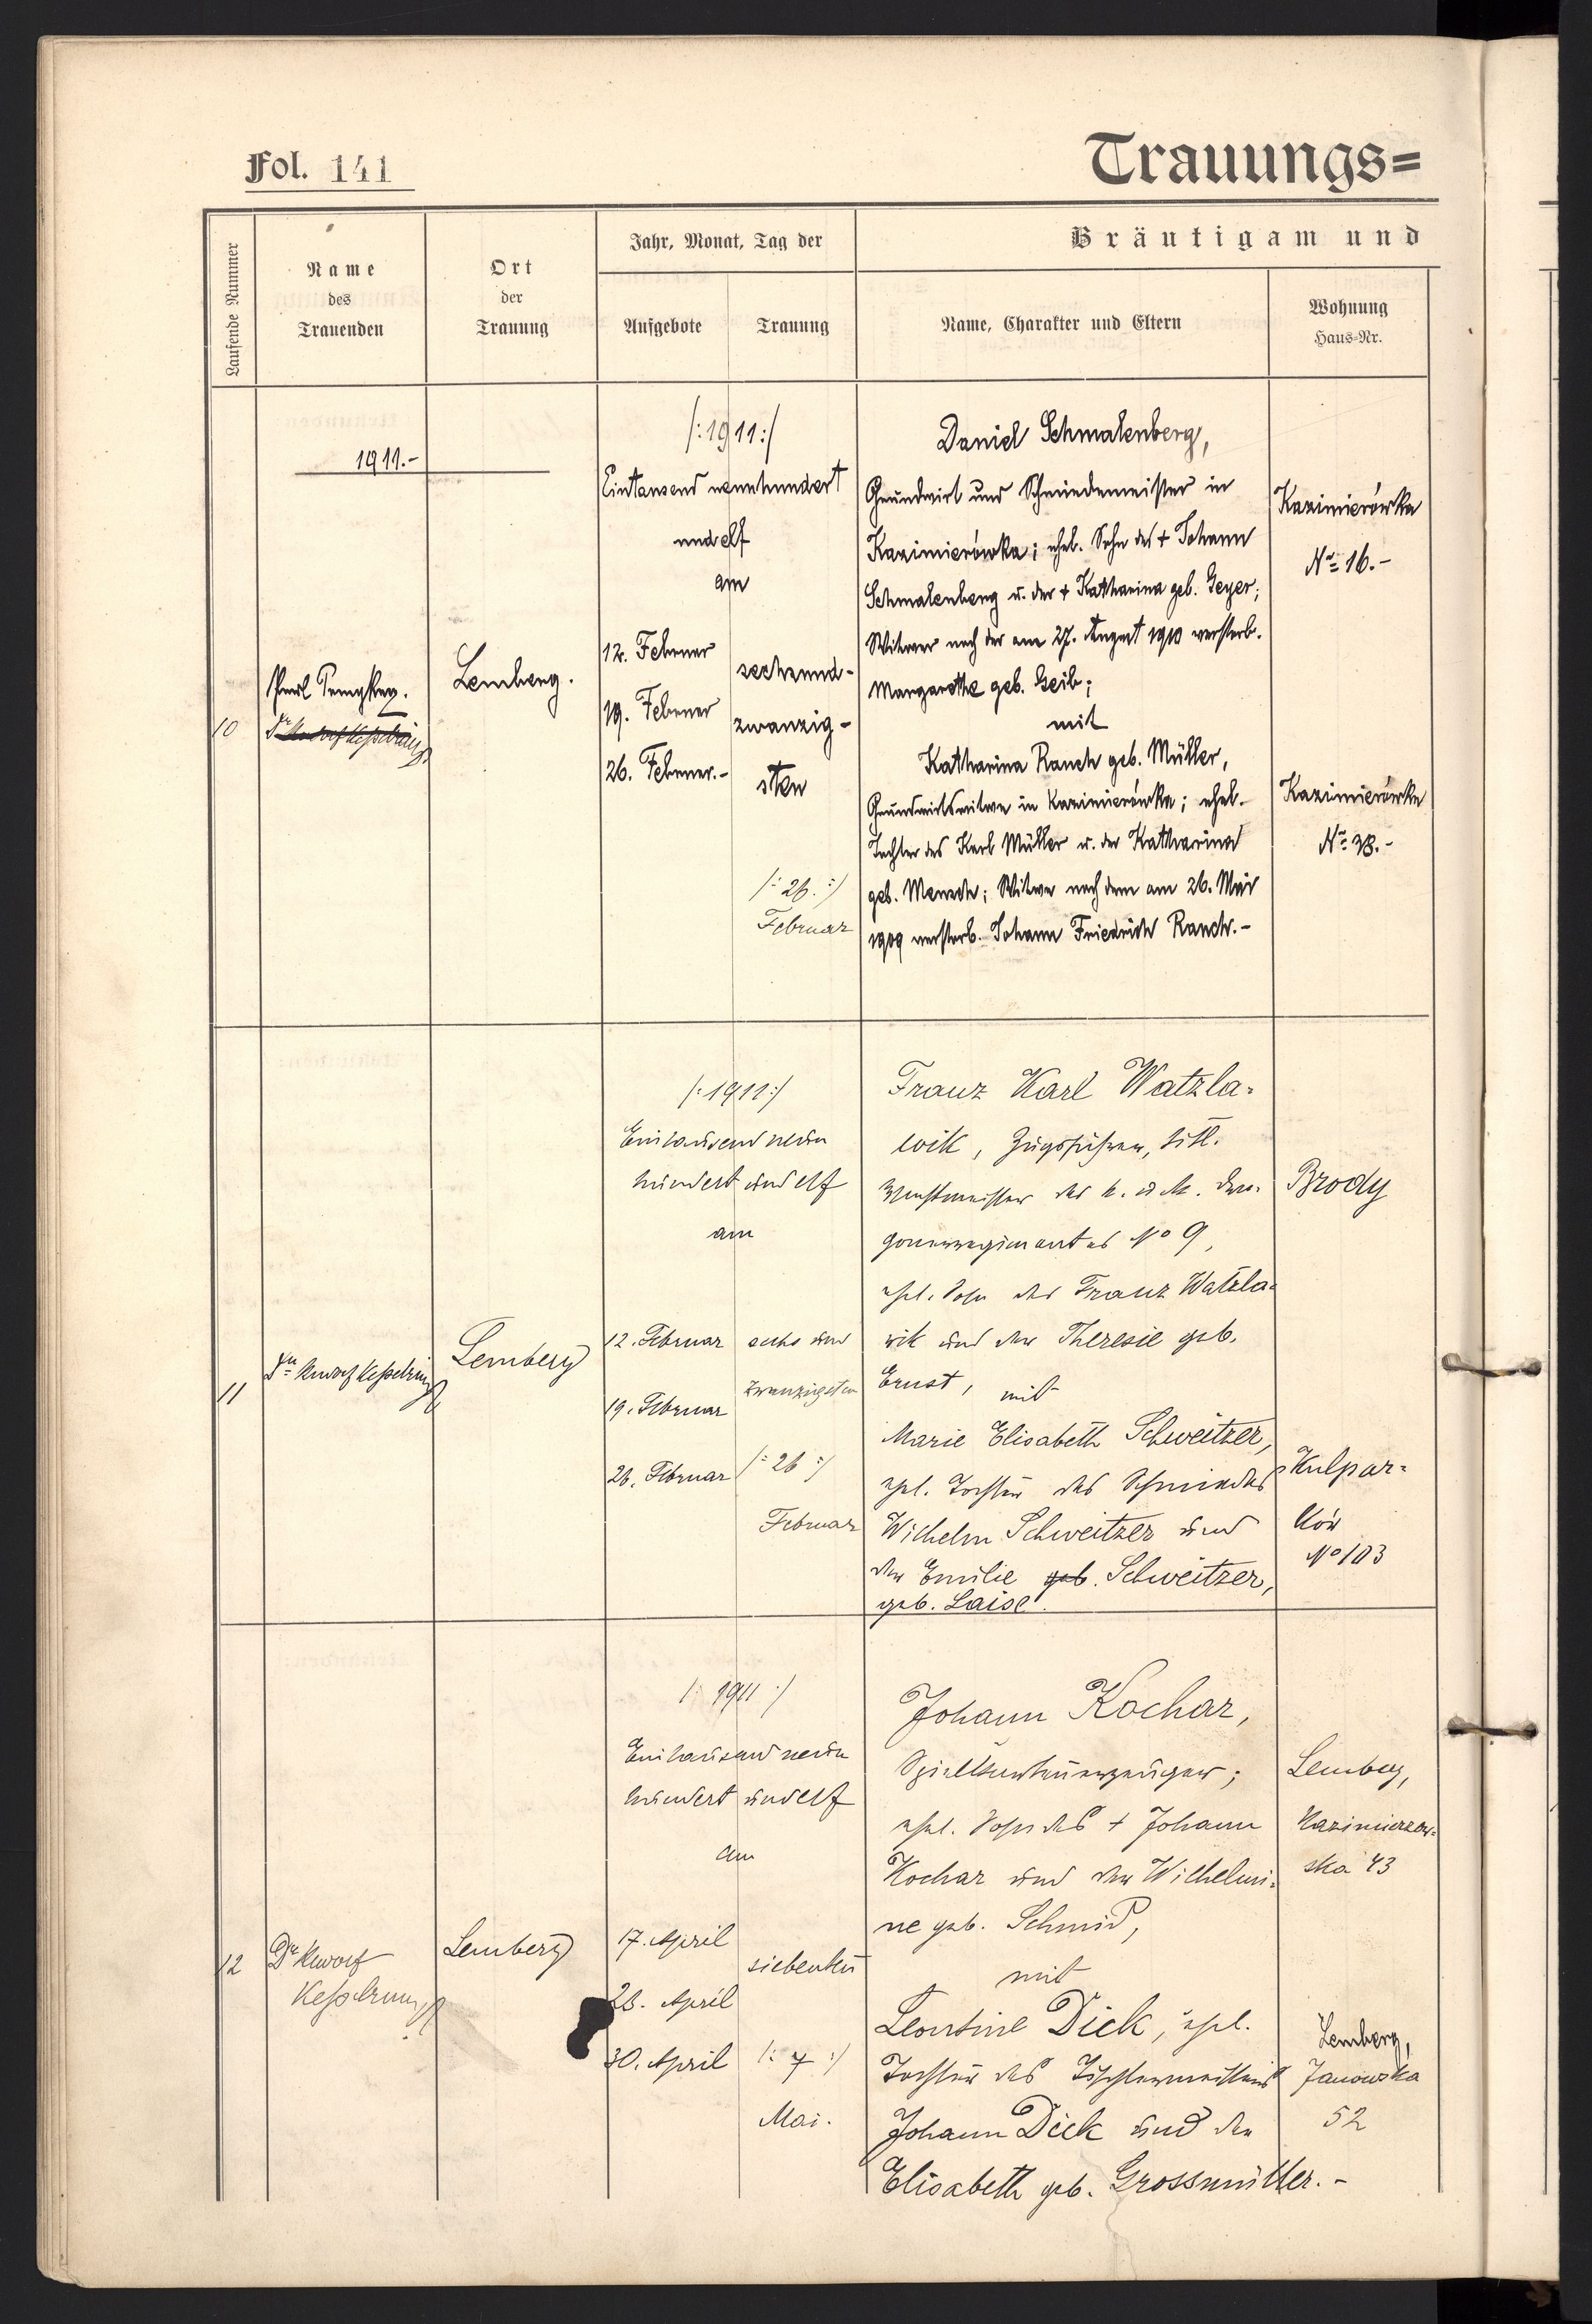 Fol. 141
Trauungs=
Laufende Nummer
Name
des
Trauenden
Ort
der
Trauung
Jahr, Monat, Tag der
Aufgebote
Trauung
Bräutigam und
Name, Charakter und Eltern
Wohnung
Haus=Nr.
1911.-
10
Dr Rudolf Kesselring
Lemberg.
/:1911:/
Eintausend neunhundert
und elf
am
12. Februar
19. Februar
26. Februar.-
sechsund-
zwanzig-
sten
/:26.:/
Februar
Daniel Schmalenberg,
Grundwirt und Schmiedemeister in
Kazimierówka; ehel. Sohn des + Johann
Schmalenberg u. der + Katharina geb. Geyer;
Witwer nach der am 27. August 1910 verstorb.
Margarethe geb. Geib;
mit
Katharina Rauch geb. Müller,
Grundwirtswitwe in Kazimierówka; ehel.
Tochter des Karl Müller u. der Katharina
geb. Mensch; Witwe nach dem am 26. Mai
1909 verstorb. Johann Friedrich Rauch.-
Kazimierówka
No 16.-
Kazimierówka
No 38.-
11
Dr Rudolf Kesselring
Lemberg
/:1911:/
Eintausend neun
hundert und elf
am
12. Februar
19. Februar
26. Februar
sechs und
zwanzigsten
/:26:/
Februar
Franz Karl Watzla-
wik, Zugsführer, tit.
Wachtmeister des k. u. k. Dra-
gonerregimentes No 9,
ehel. Sohn des Franz Watzla-
wik und der Theresie geb.
Ernst, mit
Marie Elisabeth Schweitzer,
ehel. Tochter des Schmiedes
Wilhelm Schweitzer und
der Emilie geb. Schweitzer,
geb. Laise.
Brody
Kulpar-
ków
No 103
12
Dr Rudolf
Kesselring
Lemberg
/: 1911 :/
Eintausend neun
hundert und elf
am
17. April
23. April
30. April
siebenten
/: 7 :/
Mai.
Johann Kochar,
ehel. Sohn des + Johann
Kochar und der Wilhelmi-
ne geb. Schmid,
mit
Leontine Dick, ehel.
Tochter des Tischlermeisters
Johann Dick und der
Elisabeth geb. Grossmüller.-
Lemberg,
Kazimierzow-
ska 43
Lemberg,
Janowska
52